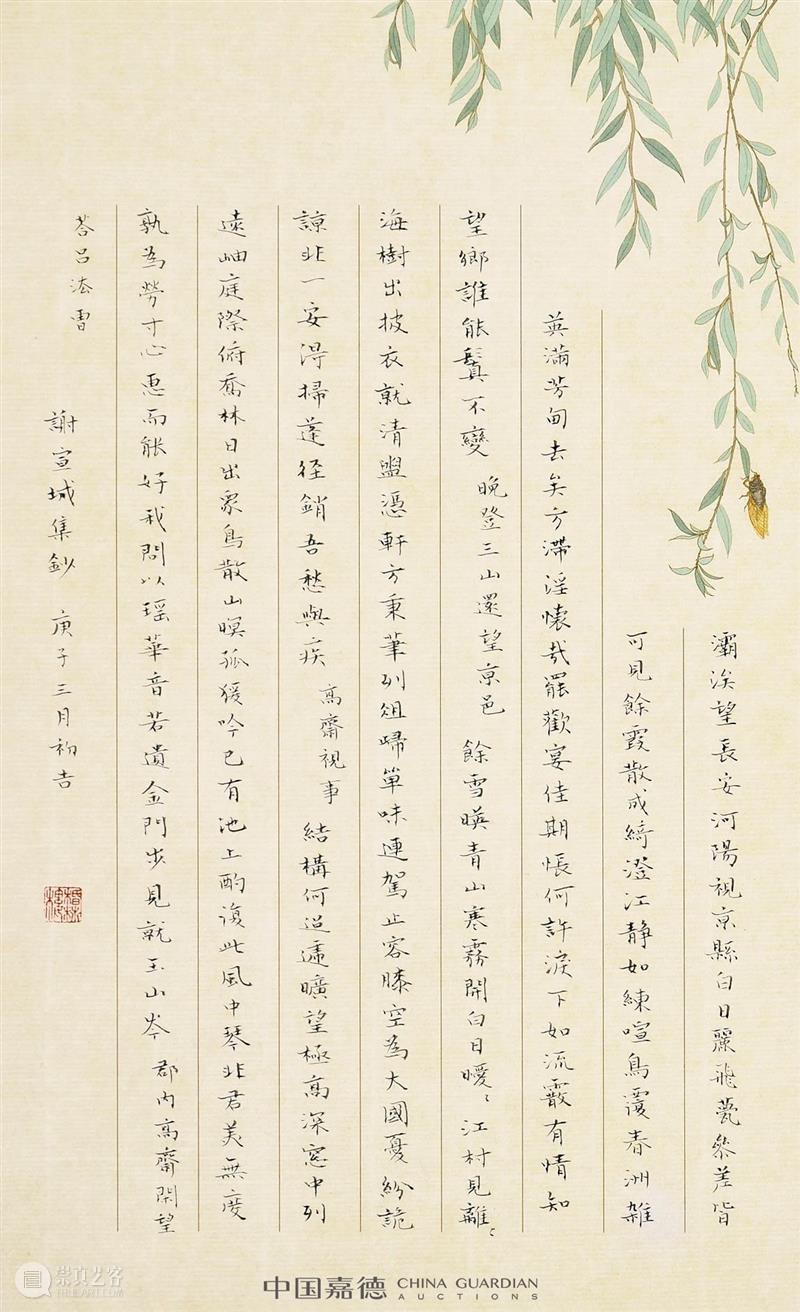 灞涘望長安河陽視京縣白日麗飛甍參差皆
可見餘霞散成綺澄江靜如練喧鳥覆春洲雜
英滿芳甸去矣方滯淫懷哉罷歡宴佳期悵何許淚下如流霰有情知
望鄉誰能鬒不變 晚登三山還望京邑 餘雪暎青山寒霧開白日曖〻江村見離〻
海樹出披衣就清盥憑軒方秉筆列俎歸單味連駕止容膝空為大國憂紛詭
諒非一安得掃蓬徑銷吾愁與疾 高齋視事 結構何迢遰曠望極高深窓中列
遠岫庭際俯喬林日出衆鳥散山暝孤猨吟已有池上酌復此風中琴非君美無度
孰為勞寸心惠而能好我問以瑶華音若遺金門步見就玉山岑 郡內高齋閑望
荅呂法曹
謝宣城集鈔 庚子三月初吉
中国嘉德 CHINA GUARDIAN AUCTIONS
崇真艺客
TRUEART.COM